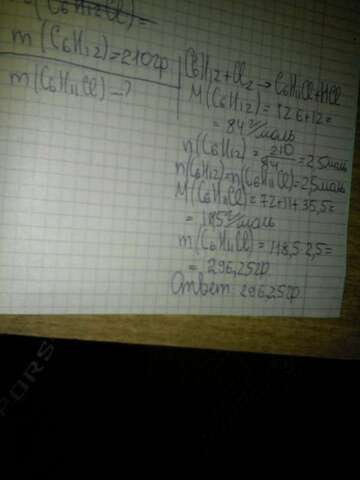 m(C6H12)=210гр
m(C6H11Cl)-?
C6H12+Cl2→C6H11Cl+HCl
M(C6H12)=12·6+12=
=84г/моль
n(C6H12)=210/84=2,5моль
n(C6H12)=n(C6H11Cl)=2,5моль
M(C6H11Cl)=72+11+35,5=
=118,5г/моль
m(C6H11Cl)=118,5·2,5=
=296,25гр
Ответ 296,25гр
PORS